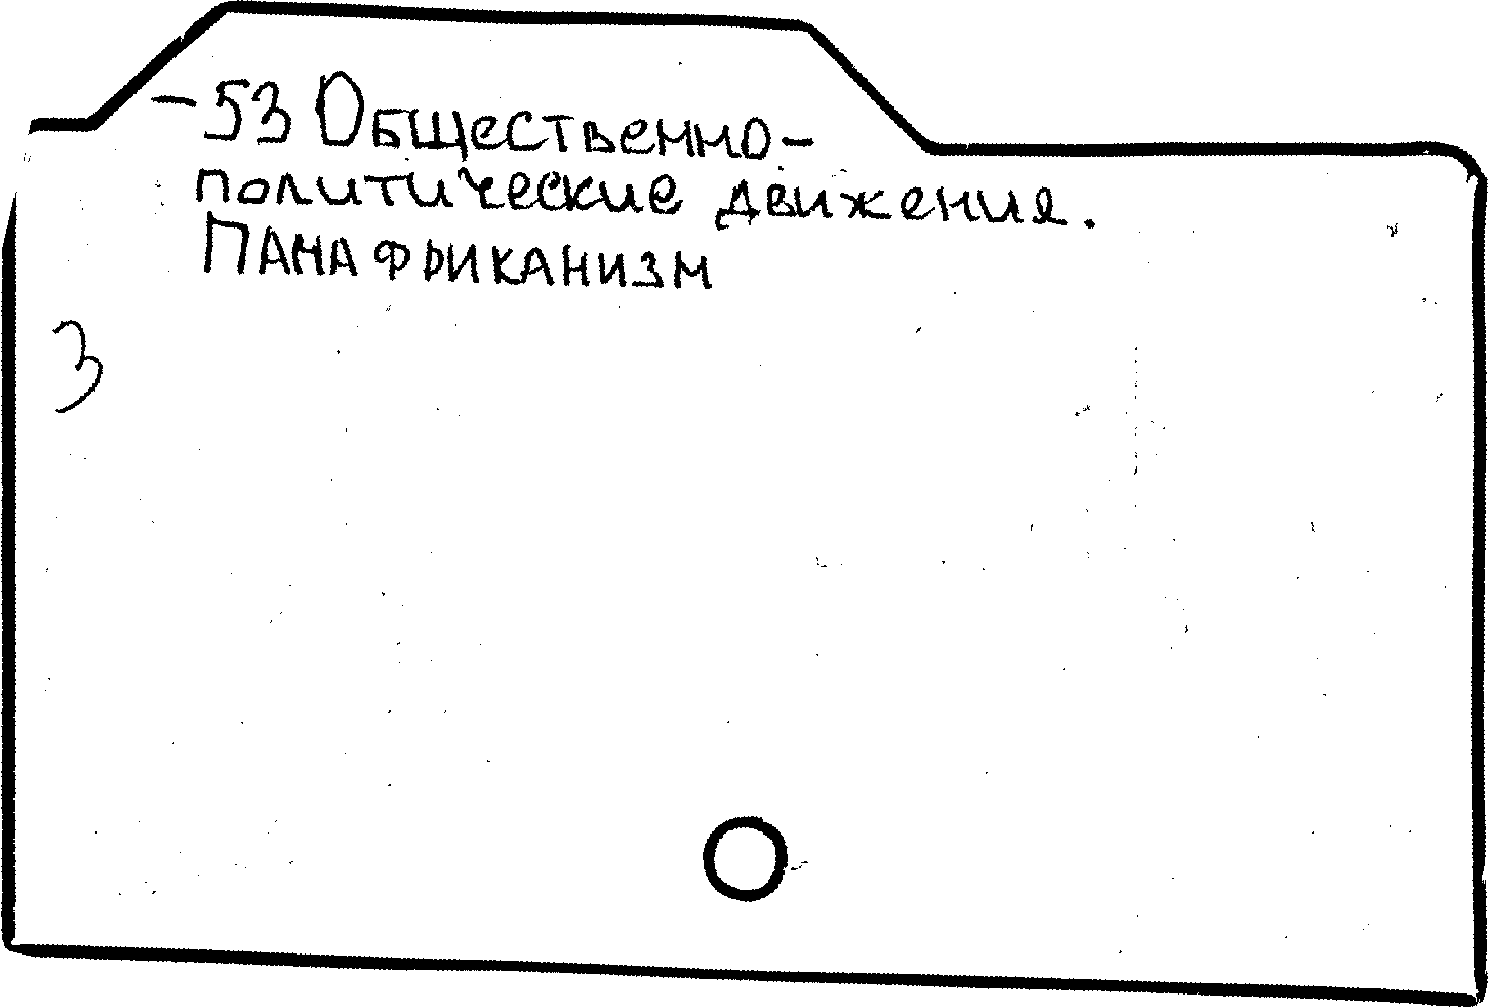 -53 Общественно-
политические движения.
Панафриканизм
3